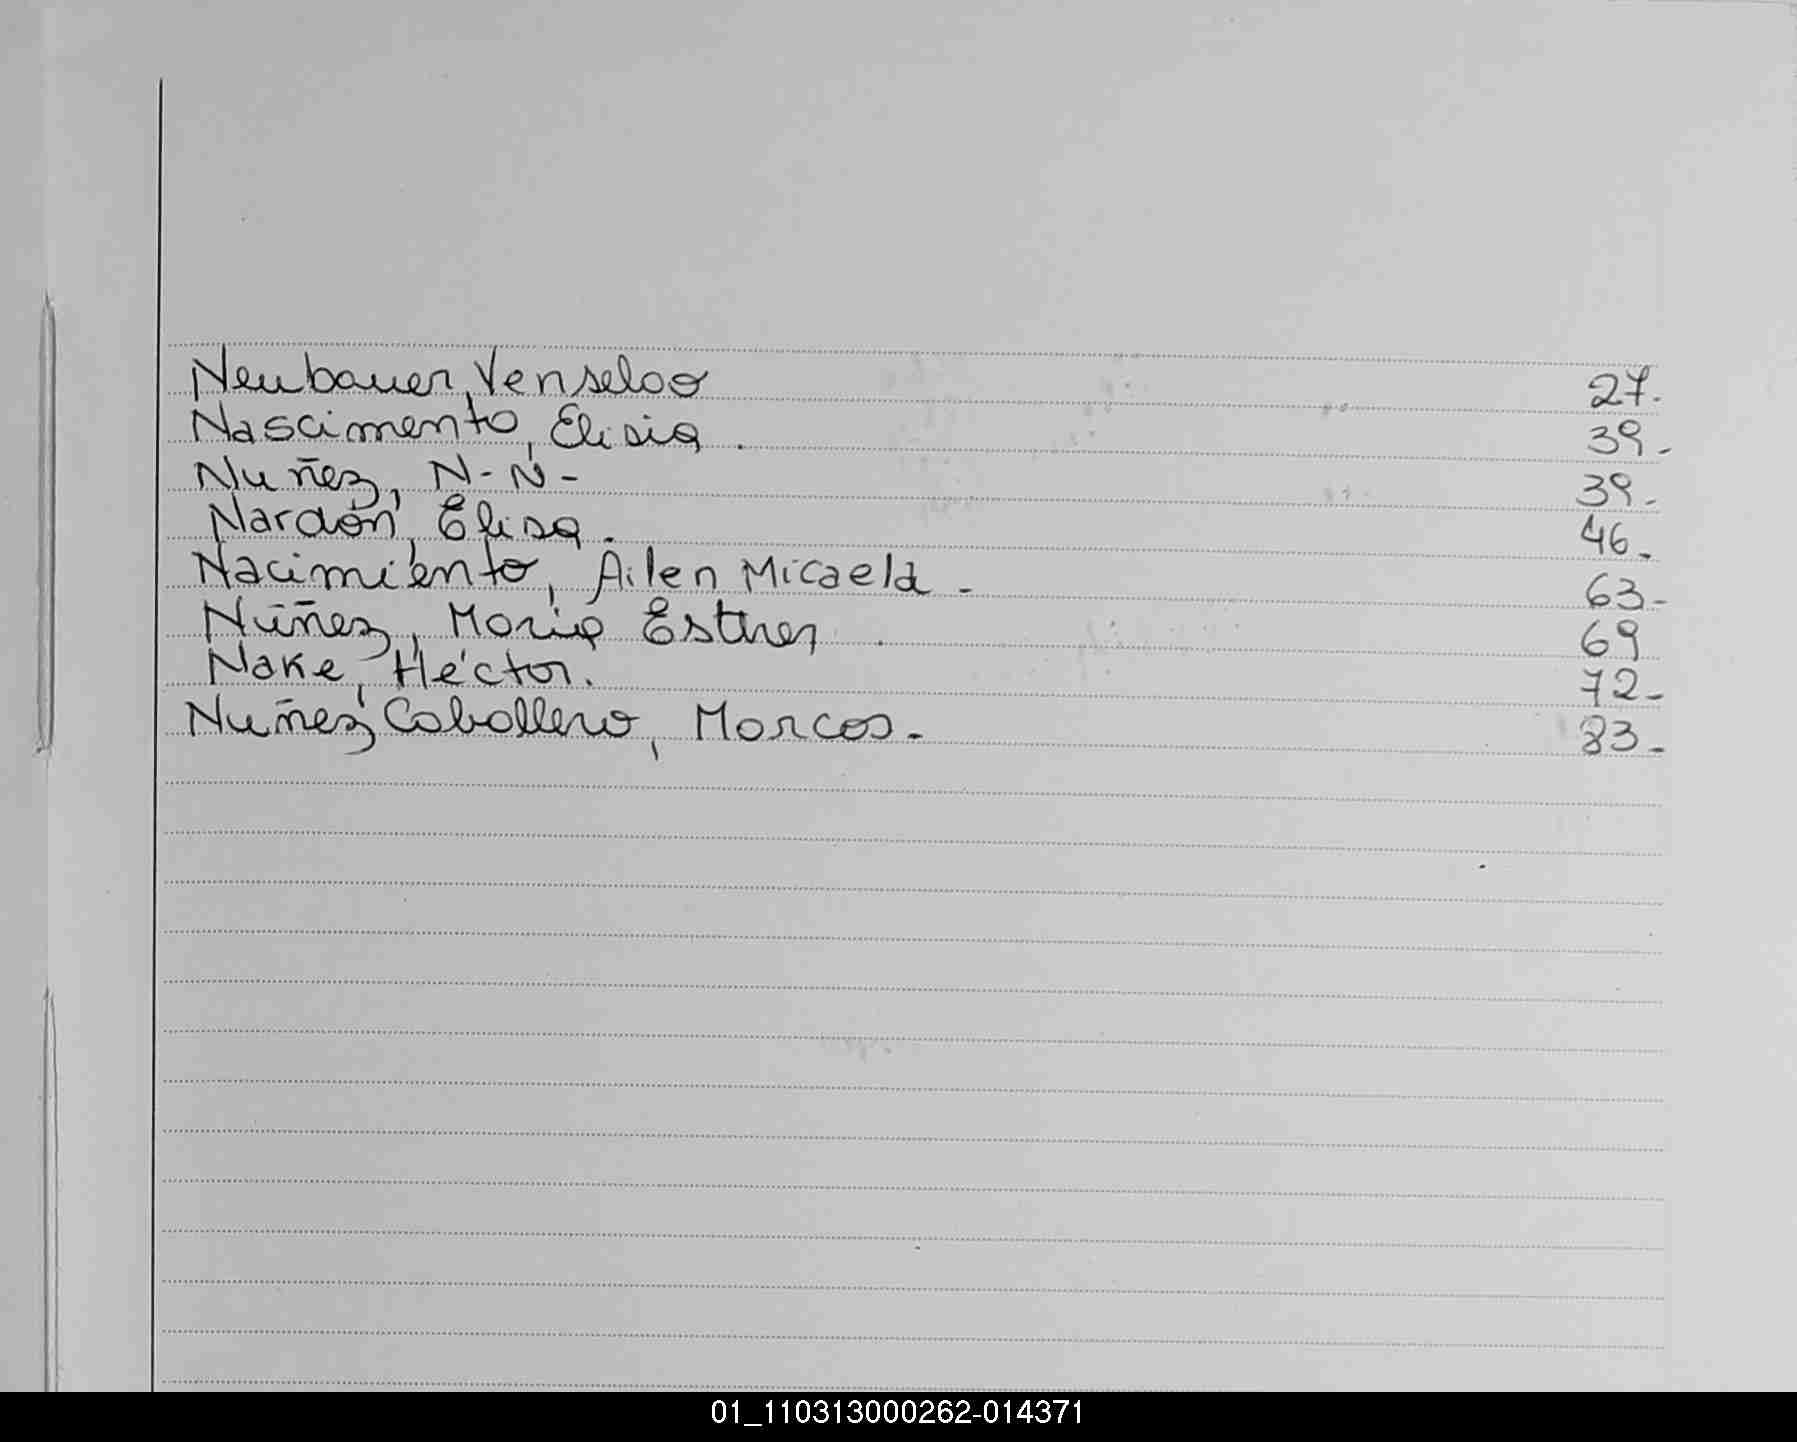 Neubauer, Venseloo 27.
Nascimento, Elisia. 39-
Nuñez, N-N- 39-
Nardón, Elisa. 46-
Nacimiento, Ailen Micaela - 63-
Núñez, Maria Esther 69
Nake, Héctor. 72-
Nuñez Caballero, Marcos. 83-
01_110313000262-014371